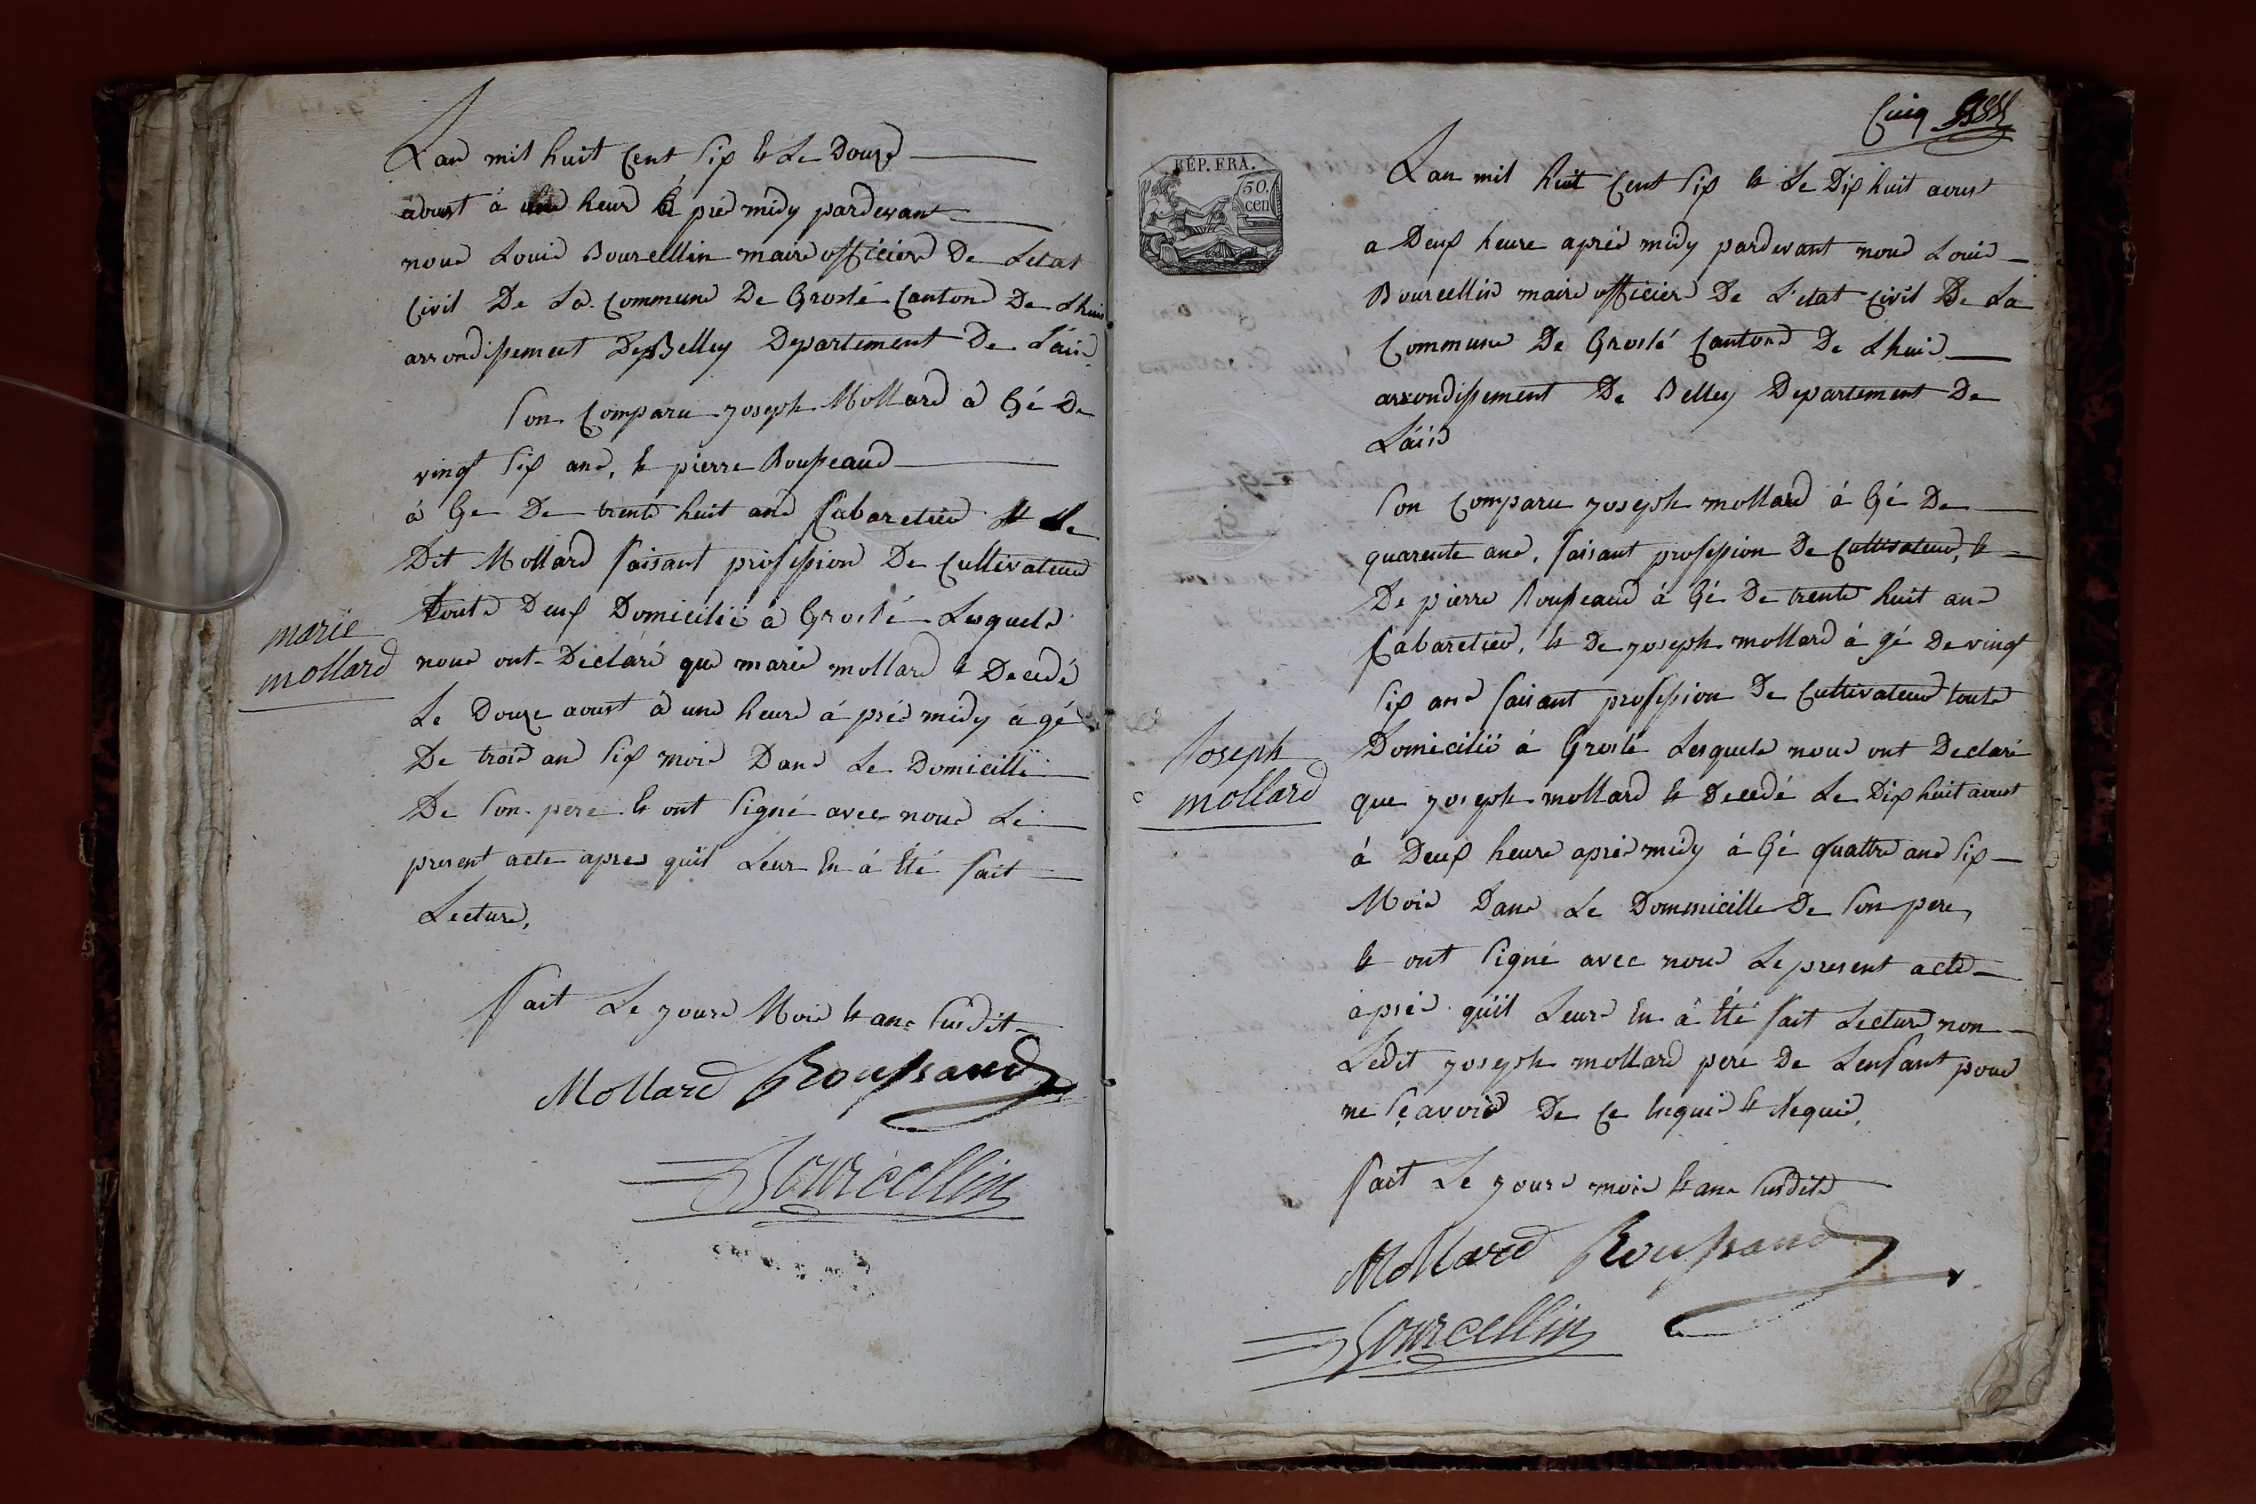 Lan mil huit Cent six & Le Douze
aoust à une heure à près midy pardevant
nous Louis Bourcellin maire officier De Letat
Civil De La Commune De Groslé Canton De Lhuis
arrondissement De Belley Departement De Láin
Son Comparu joseph Mollard à Gé De
vingt six ans, & pierre Rousseaud
à Ge De trente huit ans Cabaretier & Le
Dit Mollard faisant profession De Cultivateur
touts Deux Domicilié à Groslé Lesquels
marie
mollard
nous ont Déclaré que marie mollard & Decedé
Le Douze aoust à une heure à près midy à gé
De trois ans six mois Dans Le Domicille
De son pere & ont signé avec nous Le
present acte apres quil Leur En à Eté fait
Lecture,
fait Le jours Mois & ans susdit
Mollard Roussaud
Bourcellin
Cinq
RÉP. FRA.
50.
cen
Lan mil huit Cent six & Le Dix huit aoust
a Deux heure après midy pardevant nous Louis
Bourcellin maire officier De L'etat Civil De La
Commune De Groslé Canton De Lhuis
arrondissement De Belley Departement De
Láin
son Comparu joseph mollard á Gé De
quarente ans, faisant profession De Cultivateur, &
De pierre Rousseaud á Gé De trente huit ans
Cabaretier, & De joseph mollard á gé De vingt
six ans faisant profession De Cultivateur touts
Domicilié á Groslé Lesquels nous ont Declaré
Joseph
mollard
que joseph mollard & Decedé Le Dix huit aoust
á Deux heure après midy á Gé quattre ans six
Mois Dans Le Dommicille De son pere,
& ont signé avec nous Le present acte
après quil Leurs En á Eté fait Lecture non
Ledit joseph mollard pere De Lenfant pour
ne sçavoir De Ce Enquis & Requis,
fait Le jours mois & ans susdits
Mollard Roussaud
Bourcellin